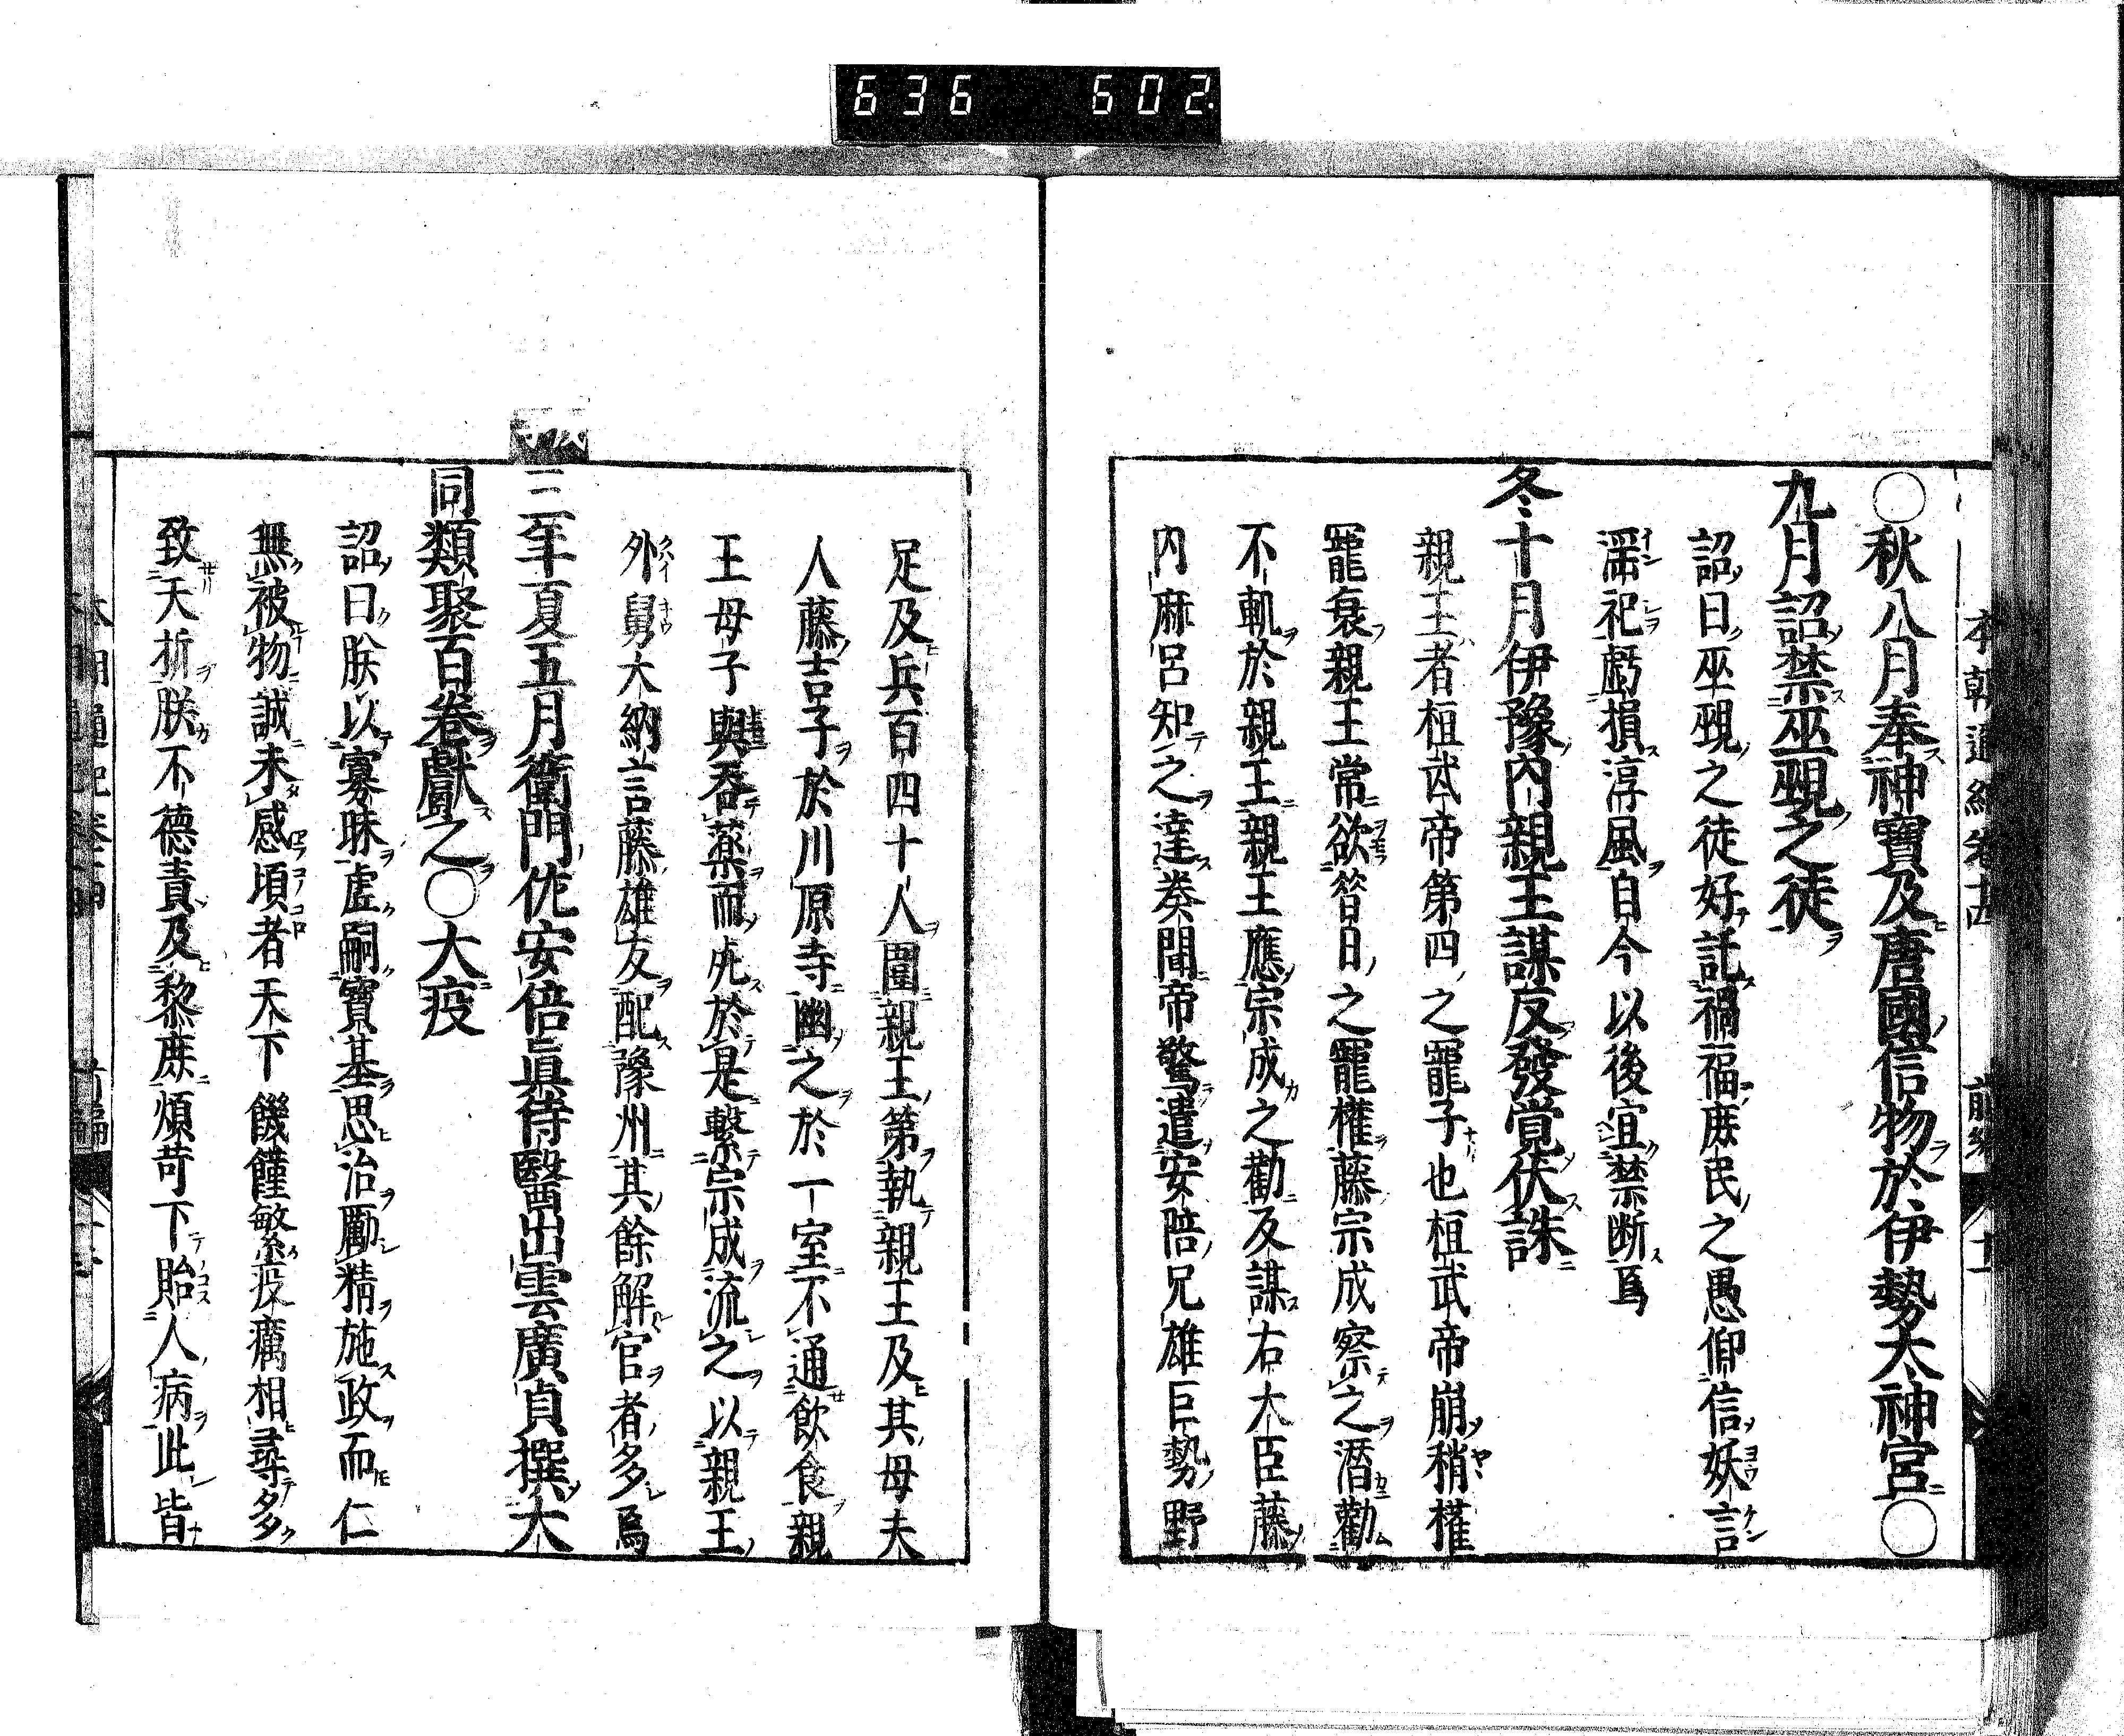 636 602
本朝通紀卷十四 前編 十二
○秋八月奉神寶及唐國信物於伊勢太神宮○
九月詔禁巫覡之徒
詔曰巫覡之徒好託禍福庶民之愚仰信妖言
淫祀虧損淳風自今以後宜禁断焉
冬十月伊豫内親王謀反發覺伏誅
親王者桓武帝第四之寵子也桓武帝崩稍權
寵衰親王常欲笞日之寵權藤宗成察之潛勸
不軌於親王親王應宗成之勸反謀右大臣藤
内麻呂知之達奏聞帝驚遣安陪兄雄巨勢野
足及兵百四十人圍親王第執親王及其母夫
人藤吉子於川原寺幽之於一室不通飲食親
王母子與吞藥而死於是繋宗成流之以親王
外舅大納言藤雄友配豫州其餘解官者多焉
三年夏五月衛門佐安倍眞侍醫出雲廣貞撰大
同類聚百卷獻之○大疫
詔曰朕以寡昧虚嗣寶基思治勵精施政而仁
無被物誠未感頃者天下饑饉繁疫癘相尋多
致夭折朕不德責及黎庶煩苛下貽人病此皆